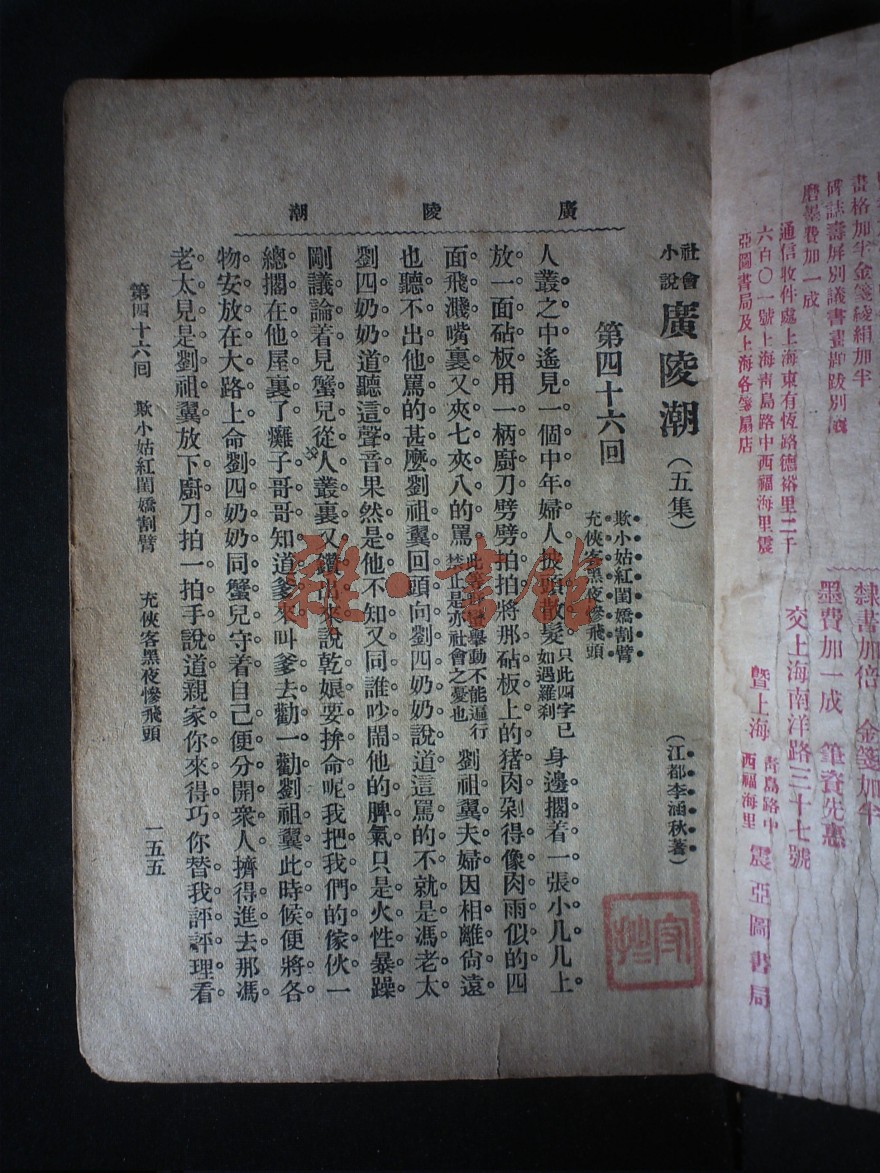 廣陵潮
社會小說 廣陵潮（五集）
第四十六回 欺小姑紅閨嬌割臂
充俠客黑夜慘飛頭
（江都李涵秋著）
人叢之中遙見一個中年婦人披頭散髮只此四字已如遇羅刹身邊擱着一張小几几上
放一面砧板用一柄廚刀劈劈拍拍將那砧板上的猪肉剁得像肉雨似的四
面飛濺嘴裏又夾七夾八的罵舉動不能逼行禁止是亦社會之憂也劉祖翼夫婦因相離尙遠
也聽不出他罵的甚麼劉祖翼回頭向劉四奶奶說道這罵的不就是馮老太
劉四奶奶道聽這聲音果然是他不知又同誰吵鬧他的脾氣只是火性暴躁
剛議論着見蟹兒從人叢裏又鑽出來說乾娘要拚命呢我把我們的傢伙一
總擱在他屋裏了癱子哥哥知道爹來叫爹去勸一勸劉祖翼此時候便將各
物安放在大路上命劉四奶奶同蟹兒守着自己便分開衆人擠得進去那馮
老太見是劉祖翼放下廚刀拍一拍手說道親家你來得巧你替我評評理看
第四十六回 欺小姑紅閨嬌割臂 充俠客黑夜慘飛頭 一五五
畫格加半金箋綾絹加半
碑誌壽屏別議書畫
別議
磨墨費加一成
通信收件處上海東有恆路德裕里二千
六百〇一號上海靑島路中西福海里震
亞圖書局及上海各箋扇店
隸書加倍 金箋加半
墨費加一成 筆資先惠
交上海南洋路三十七號
暨上海靑島路中西福海里震亞圖書局
雜·書館